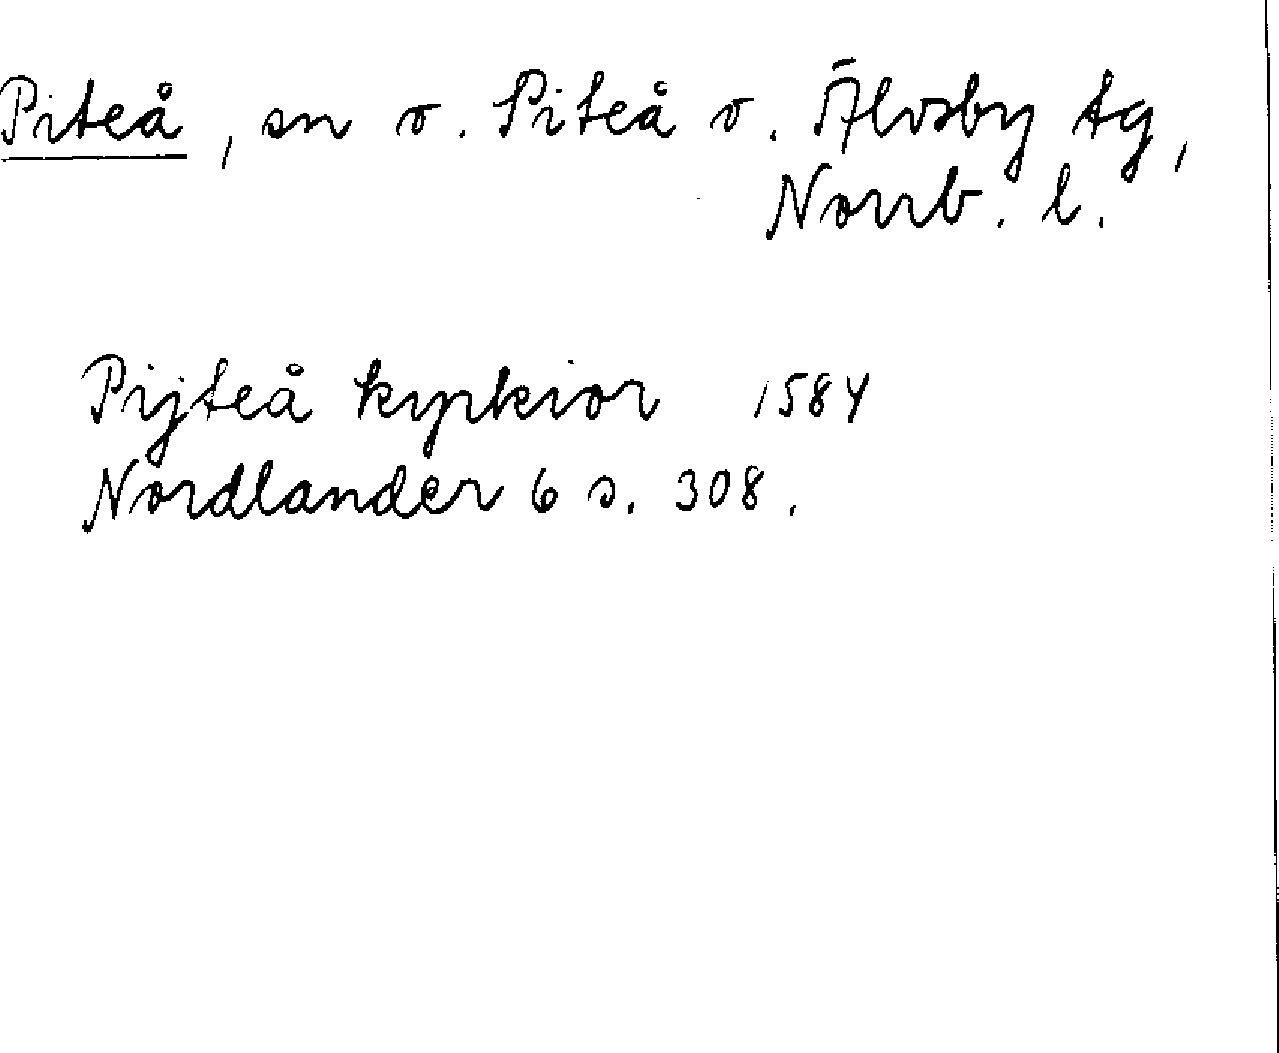 Piteå, sn o. Piteå o. Älvsby tg,
Norrb. l.
Pijteå kyrkior 1584
Nordlander 6 s. 308.